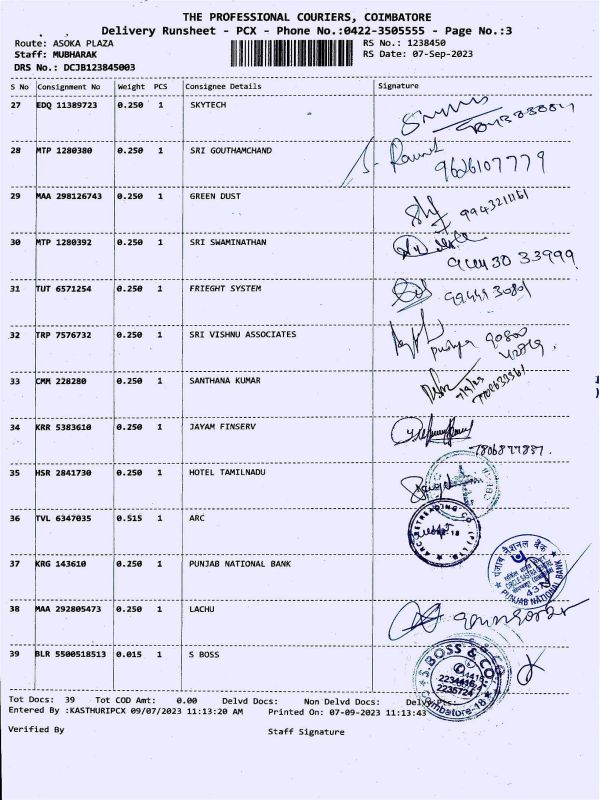 THE PROFESSIONAL COURIERS, COIMBATORE
Delivery Runsheet - PCX - Phone No.:0422-3505555 - Page No.:3
Route: ASOKA PLAZA RS No.: 1238450
Staff: MUBHARAK RS Date: 07-Sep-2023
DRS No.: DCJB123845003
S No Consignment No Weight PCS Consignee Details Signature
27 EDQ 11389723 0.250 1 SKYTECH
28 MTP 1280380 0.250 1 SRI GOUTHAMCHAND
9626107779
29 MAA 298126743 0.250 1 GREEN DUST
30 MTP 1280392 0.250 1 SRI SWAMINATHAN
31 TUT 6571254 0.250 1 FRIEGHT SYSTEM
32 TRP 7576732 0.250 1 SRI VISHNU ASSOCIATES
33 CMM 228280 0.250 1 SANTHANA KUMAR
7/9/23
34 KRR 5383610 0.250 1 JAYAM FINSERV
35 HSR 2841730 0.250 1 HOTEL TAMILNADU
36 TVL 6347035 0.515 1 ARC
ARC RETREADING CO (P) LTD.
37 KRG 143610 0.250 1 PUNJAB NATIONAL BANK
पंजाब नैशनल बैंक
PUNJAB NATIONAL BANK
38 MAA 292805473 0.250 1 LACHU
39 BLR 5500518513 0.015 1 S BOSS
S.BOSS & CO.
2235724
Coimbatore-18
Tot Docs: 39 Tot COD Amt: 0.00 Delvd Docs: Non Delvd Docs: Delvd Pts:
Entered By :KASTHURIPCX 09/07/2023 11:13:20 AM Printed On: 07-09-2023 11:13:43
Verified By Staff Signature